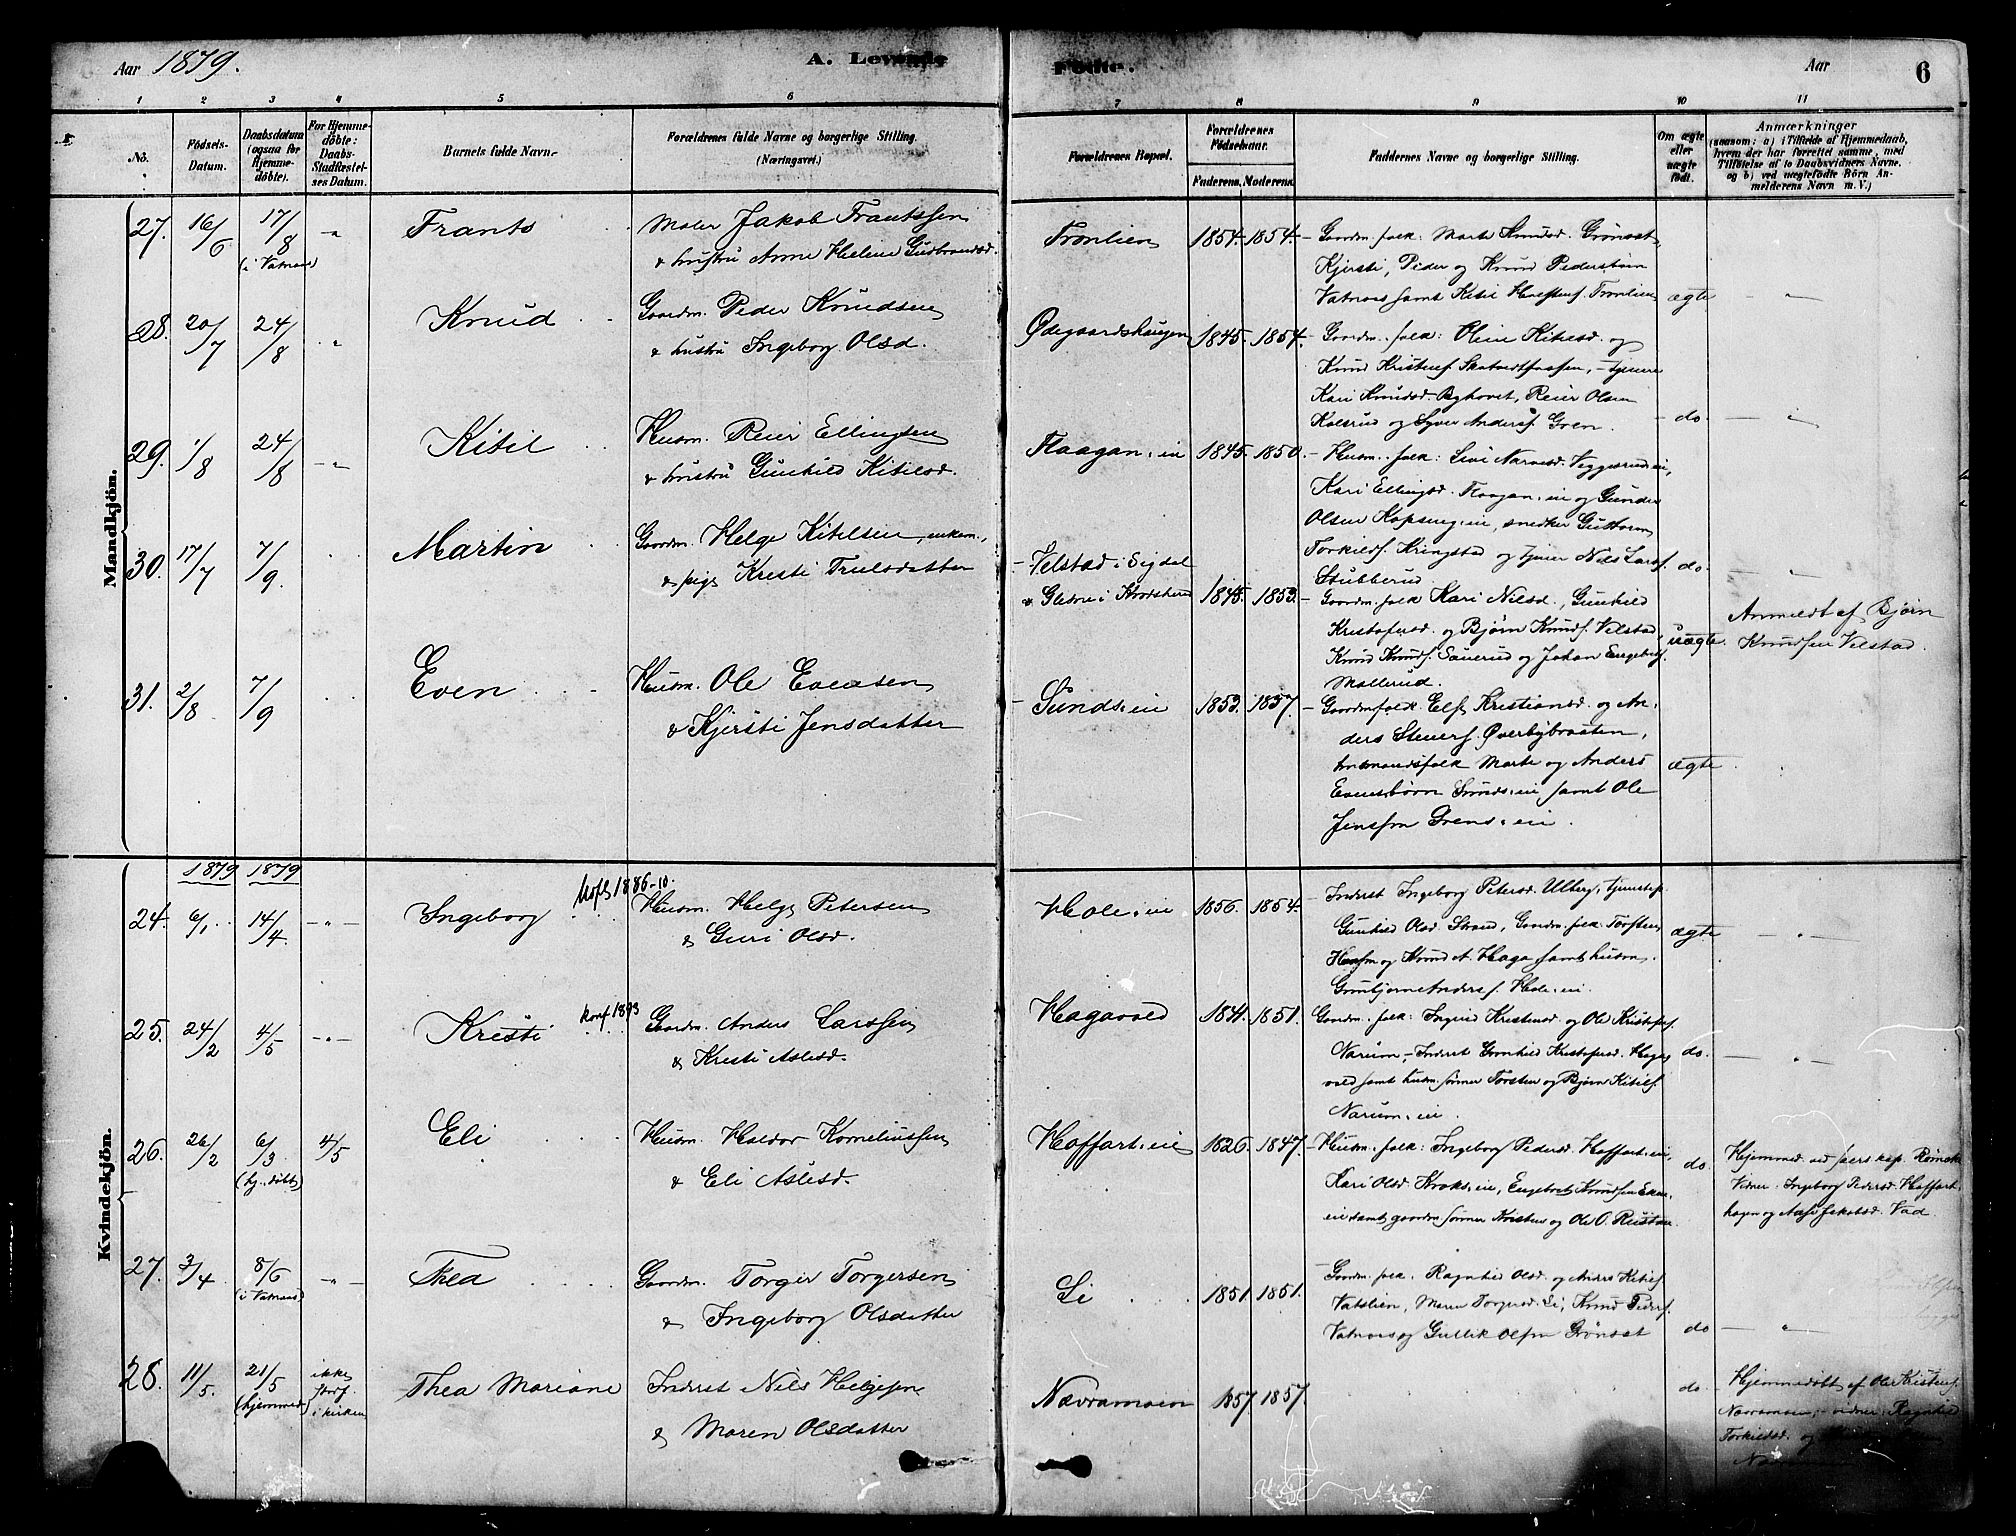 Aar 1879.
A. Levende
Fødte.
Aar
6
1 2 3 4 5 6 7 8 9 10 11
No.
Fødsels-Datum.
Daabsdatum (ogsaa for Hjemme-døbte).
For Hjemme-døbte: Daabs-Stadfæstel-ses Datum.
Barnets fulde Navn.
Forældrenes fulde Navne og borgerlige Stilling. (Næringsvei.)
Forældrenes Bopæl.
Forældrenes Fødselsaar.
Faderens. Moderens.
Faddernes Navne og borgerlige Stilling.
Om ægte eller uægte født.
Anmærkninger
(saasom: a) i Tilfælde af Hjemmedaab, hvem der har forrettet samme, med Tilføielse af to Daabsvidners Navne, og b) ved uægtefødte Børn Anmelderens Navn m. V.)
Mandkjön.
27. 16/6 17/8 (i Vatnaas) -"- Frants
Maler Jakob Frantssen
& hustru Anne Helene Gudbrandsd.
Tronlien 1854. 1854.
Gaardm. folk: Marte Knudsd. Grønset,
Kjersti, Peder og Knud Pedersbørn
Vatnaas samt Kitil Tronlien
ægte -"-
28. 20/7 24/8 " Knud
Gaardm. Peder Knudsen
& hustru Ingeborg Olsd.
Ødegaardshaugen 1845. 1854.
Gaardm. folk: Oline Kitilsd. og
Knud Kristens. tjener
Kari Knudsd. Byhovet, Reier Olsen
Kolsrud og Syver Anders. Gren.
do. -"-
29. 1/8 24/8 -"- Kitil
Husm. Reier Ellingsen
& hustru Gunhild Kitilsd.
Flaagan.ei 1845. 1850.
Husm. folk: Live Narvesd. Veggerud.ei,
Kari Ellingsd. Flaagan.ei og Gunder
Olsen Kopseng.ei, snedker Guttorm
Torkilds. Kringstad og tjener Nils Lars.
Stubberud
do. -"-
30. 17/7 7/9. Martin
Gaardm. Helge Kitilsen, enkem.,
& pige Kristi Trulsdatter
Velstad i Sigdal
& Glesne i Krødsherred 1845. 1853.
Gaardm. folk Kari Nilsd., Gunhild
Kristofersd. og Bjørn Knuds. Velstad,
Knud Knuds. Sauerud og Johan Engebrets.
Mollerud.
uægte.
Anmeldt af Bjørn
Knudsen Velstad.
31. 2/8 7/9 Even
Husm. Ole Evensen
& Kjersti Jensdatter
Sunds.ei 1853. 1857.
Gaardmfolk Kristiansd. og An-
ders Steners. Øverbybraaten,
husmandsfolk Marte og Anders
Evensbørn Sunds.ei samt Ole
Jenssen Grens.ei.
ægte
Kvindekjön.
1879 1879
24. 6/1. 14/4. -"- Ingeborg
1886-10.
Husm. Helge Petersen
& Guri Olsd.
Hole.ei 1856. 1854.
Inderst Ingeborg Petersd. Ulberg, tjenestep.
Gunhild Olsd. Strand, Gaardm. folk Torsten
og Knud A. Haga samt husm.
Hole.ei.
ægte -"-
25. 24/2 4/5 -"- Kristi
konf. 1893
Gaardm. Anders Larssen
& Kristi Aslesd.
Hagavold 1841. 1851.
Gaardm. folk: Ingrid Kristensd. og Ole Kristofers.
Narum, Inderst Gunhild Kristofersd. Haga-
vold samt husm. sønner Torsten og Bjørn Kitils.
Narum.ei.
do. -"-
26. 26/2 6/3. (hj. døbt) 4/5 Eli
Husm. Haldor Korneliussen
& Eli Aslesd.
Hoffart.ei 1826. 1847.
Husm. folk: Ingeborg Pedersd. Hoffart.ei,
Kari Olsd. Kroks.ei, Engebret Knudsen
ei samt gaardm. sønner Kristen og Ole O. Rustan.
do.
Hjemmed. ved pers. kap.
Vidner: Ingeborg Pedersd. Hoffart-
hagen og Aase Jakobsd. Vad.
27. 3/4. 8/6 (i Vatnaas) -"- Thea
Gaardm. Torger Torgersen
& Ingeborg Olsdatter
Li 1851. 1851.
Gaardm. folk: Ragnhild Olsd. og Anders Kitils.
Vatslien, Maren Torgersd. Li, Knud Peders.
Vatnaas og Gullik Olsen Grønset
do -"-
28. 11/5. 21/5 (hjemmed.) ikke stadf. i kirken Thea Mariane
Inderst Nils Helgesen
& Maren Olsdatter
Nævramoen 1857. 1857.
do.
Hjemmedøbt af Ole Kristens.
Nævramoen, vidner: Ragnhild
Torkildsd. og